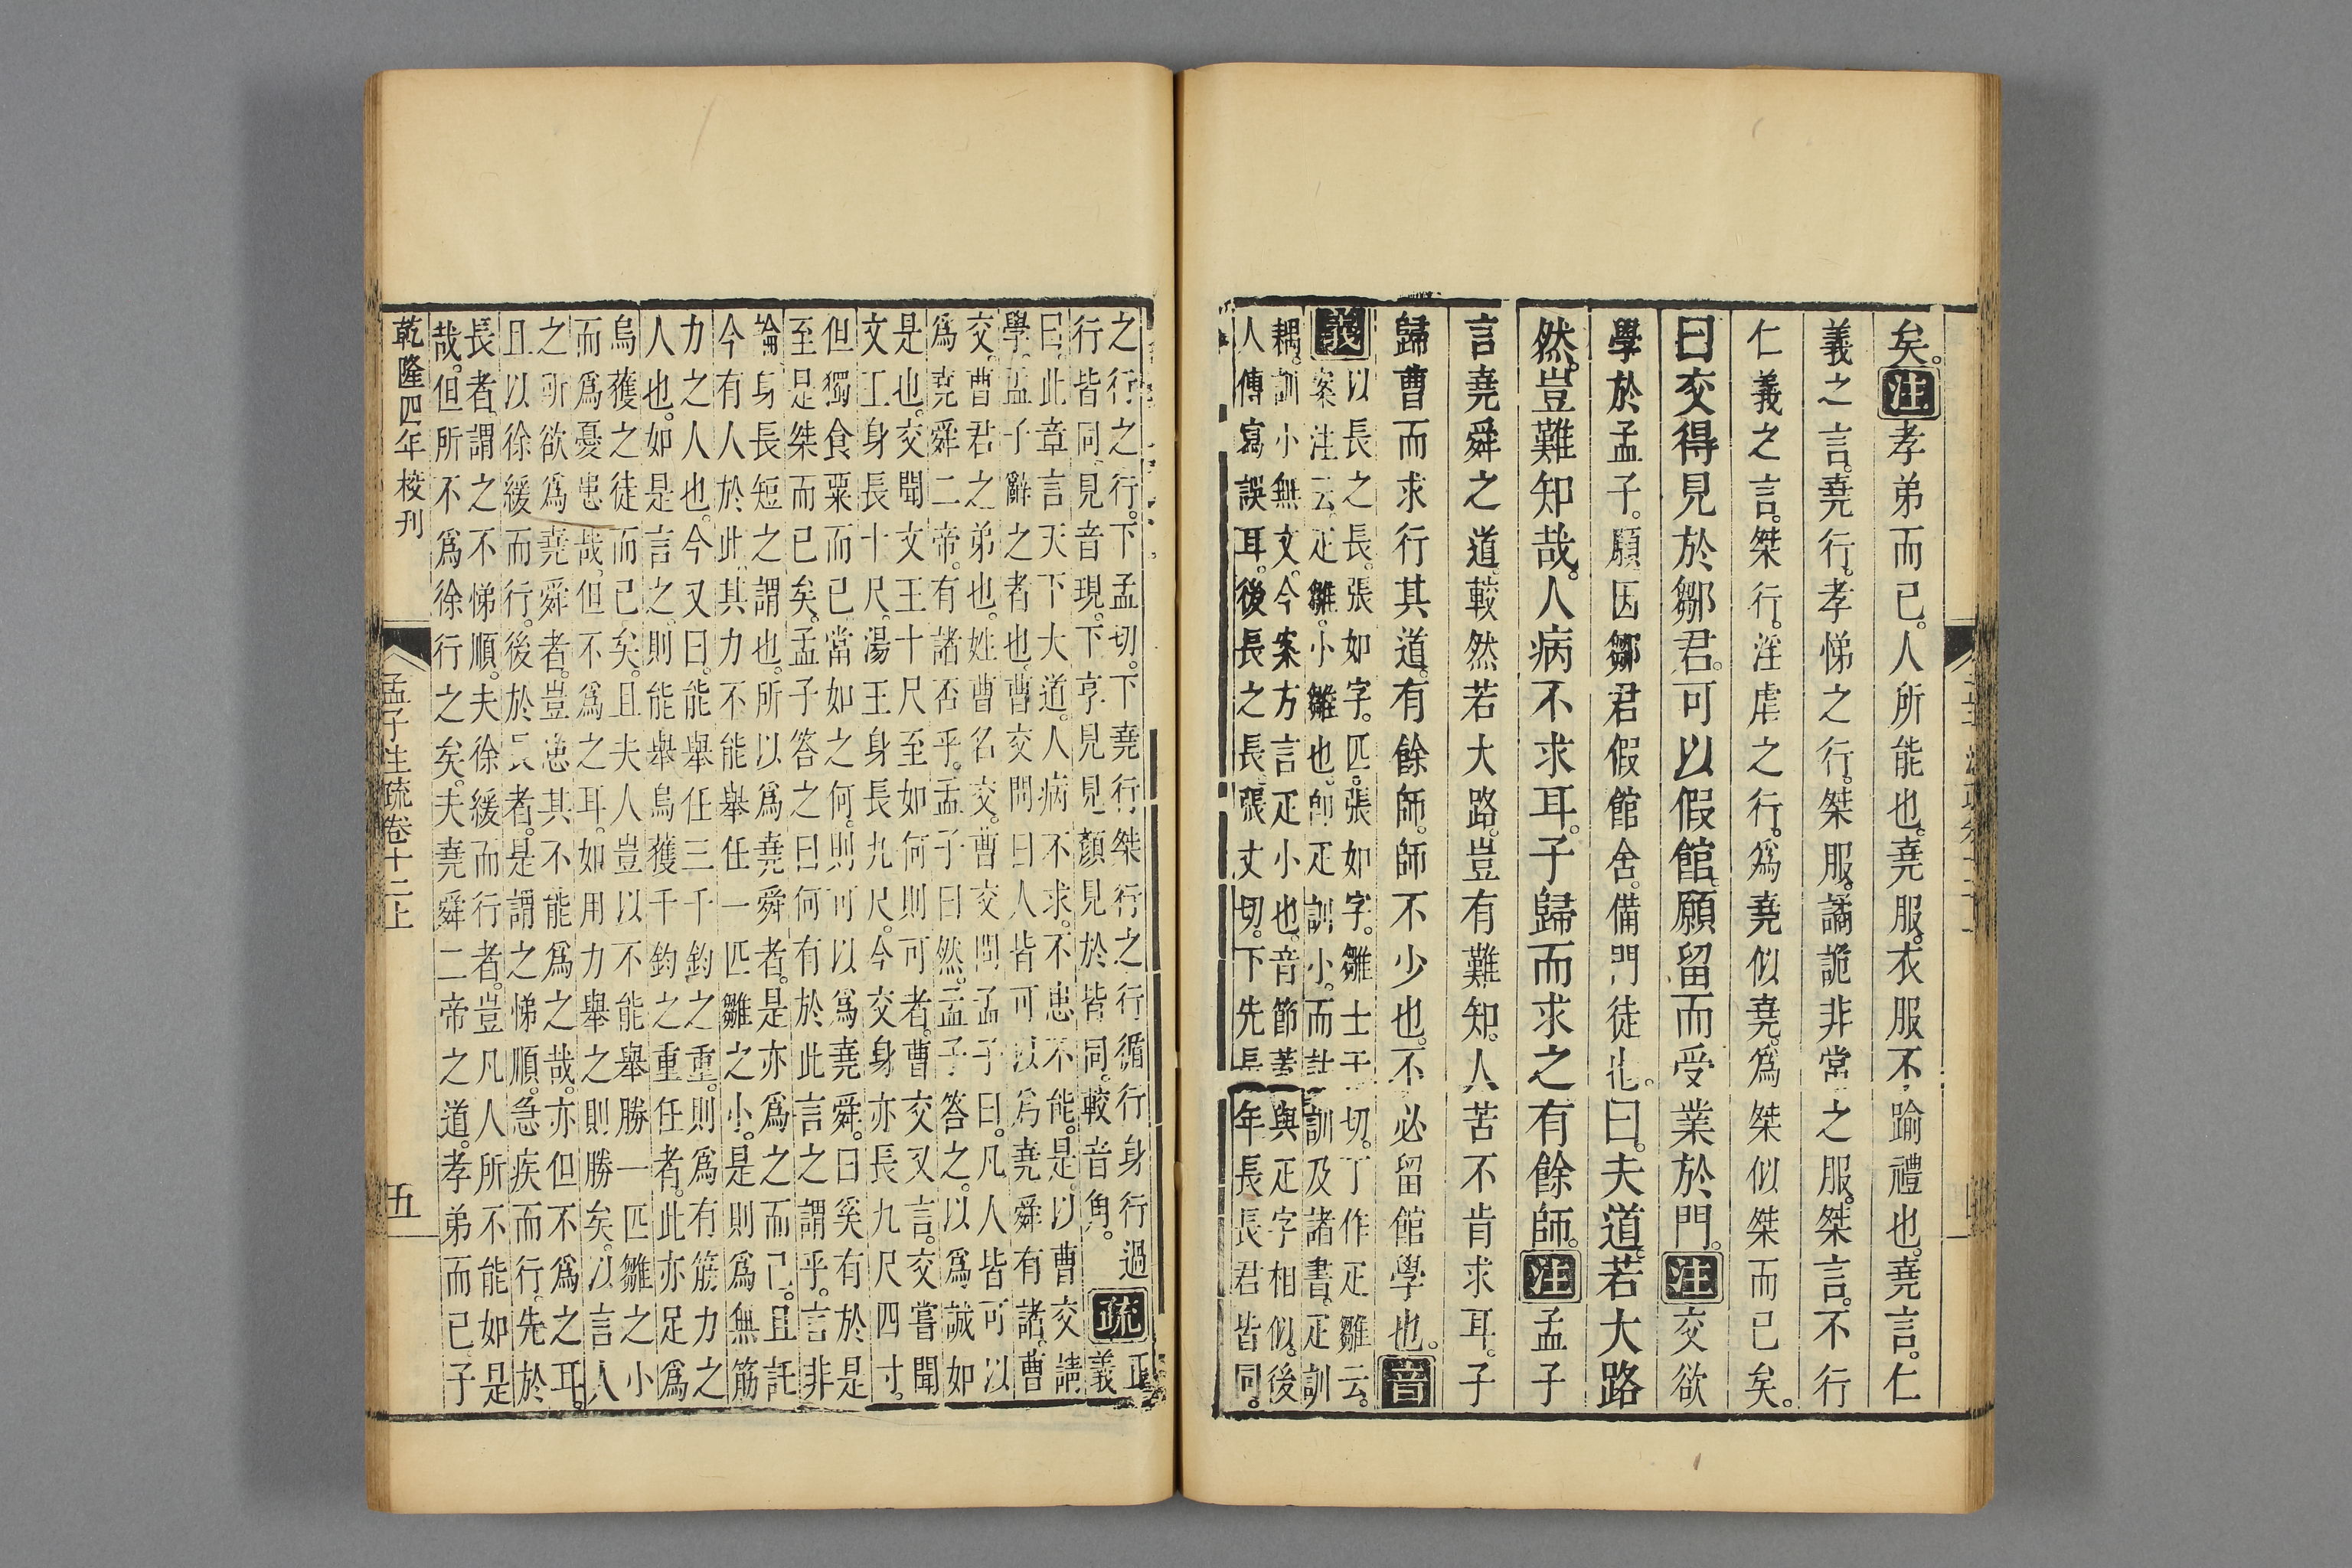 矣。注孝弟而已。人所能也。堯服。衣服不踰禮也。堯言。仁
義之言。堯行。孝悌之行。桀服。譎詭非常之服。桀言。不行
仁義之言。桀行。淫虐之行。爲堯似堯。爲桀似桀而已矣。
曰交得見於鄒君。可以假館。願留而受業於門。注交欲
學於孟子。願因鄒君假館舍。備門徒也。曰。夫道。若大路
然。豈難知哉。人病不求耳。子歸而求之。有餘師。注孟子
言堯舜之道。較然若大路。豈有難知。人苦不肯求耳。子
歸曹而求行其道。有餘師。師不少也。不必留館學也。音
義以長之長。張如字。匹。張如字。雛士于切。丁作疋雛云。
案注云。疋雛。小雛也。卽疋訓小。而詁訓及諸書。疋訓
耦。訓小無文。今案方言疋小也。音節。葢與疋字相似。後
人傳寫誤耳。後長之長。張丈切。下先長年長長君皆同。
之行之行。下孟切。下堯行桀行之行循行身行過
行皆同。見音現。下亨見見顏見於皆同。較音角。疏正義
曰。此章言天下大道。人病不求。不患不能。是以曹交請
學。孟子辭之者也。曹交問曰人皆可以爲堯舜有諸。曹
交。曹君之弟也。姓曹名交。曹交問孟子曰。凡人皆可以
爲堯舜二帝。有諸否乎。孟子曰然。孟子答之。以爲誠如
是也。交聞文王十尺至如何則可者。曹交又言。交嘗聞
文王身長十尺。湯王身長九尺。今交身亦長九尺四寸。
但獨食粟而已。當如之何。則可以爲堯舜。曰奚有於是
至是桀而已矣。孟子答之曰何有於此言之謂乎。言非
論身長短之謂也。所以爲堯舜者。是亦爲之而已。且託
今有人於此。其力不能舉任一匹雛之小。是則爲無筋
力之人也。今又曰。能舉任三千鈞之重。則爲有筋力之
人也。如是言之。則能舉烏獲千鈞之重任者。此亦足爲
烏獲之徒而已矣。且夫人豈以不能舉勝一匹雛之小
而爲憂患哉。但不爲之耳。如用力舉之則勝矣。以言人
之所欲爲堯舜者。豈患其不能爲之哉。亦但不爲之耳。
且以徐緩而行。後於長者。是謂之悌順。急疾而行。先於
長者。謂之不悌順。夫徐緩而行者。豈凡人所不能如是
哉。但所不爲徐行之矣。夫堯舜二帝之道。孝弟而已子
乾隆四年校刊
孟子注疏卷十二上
五